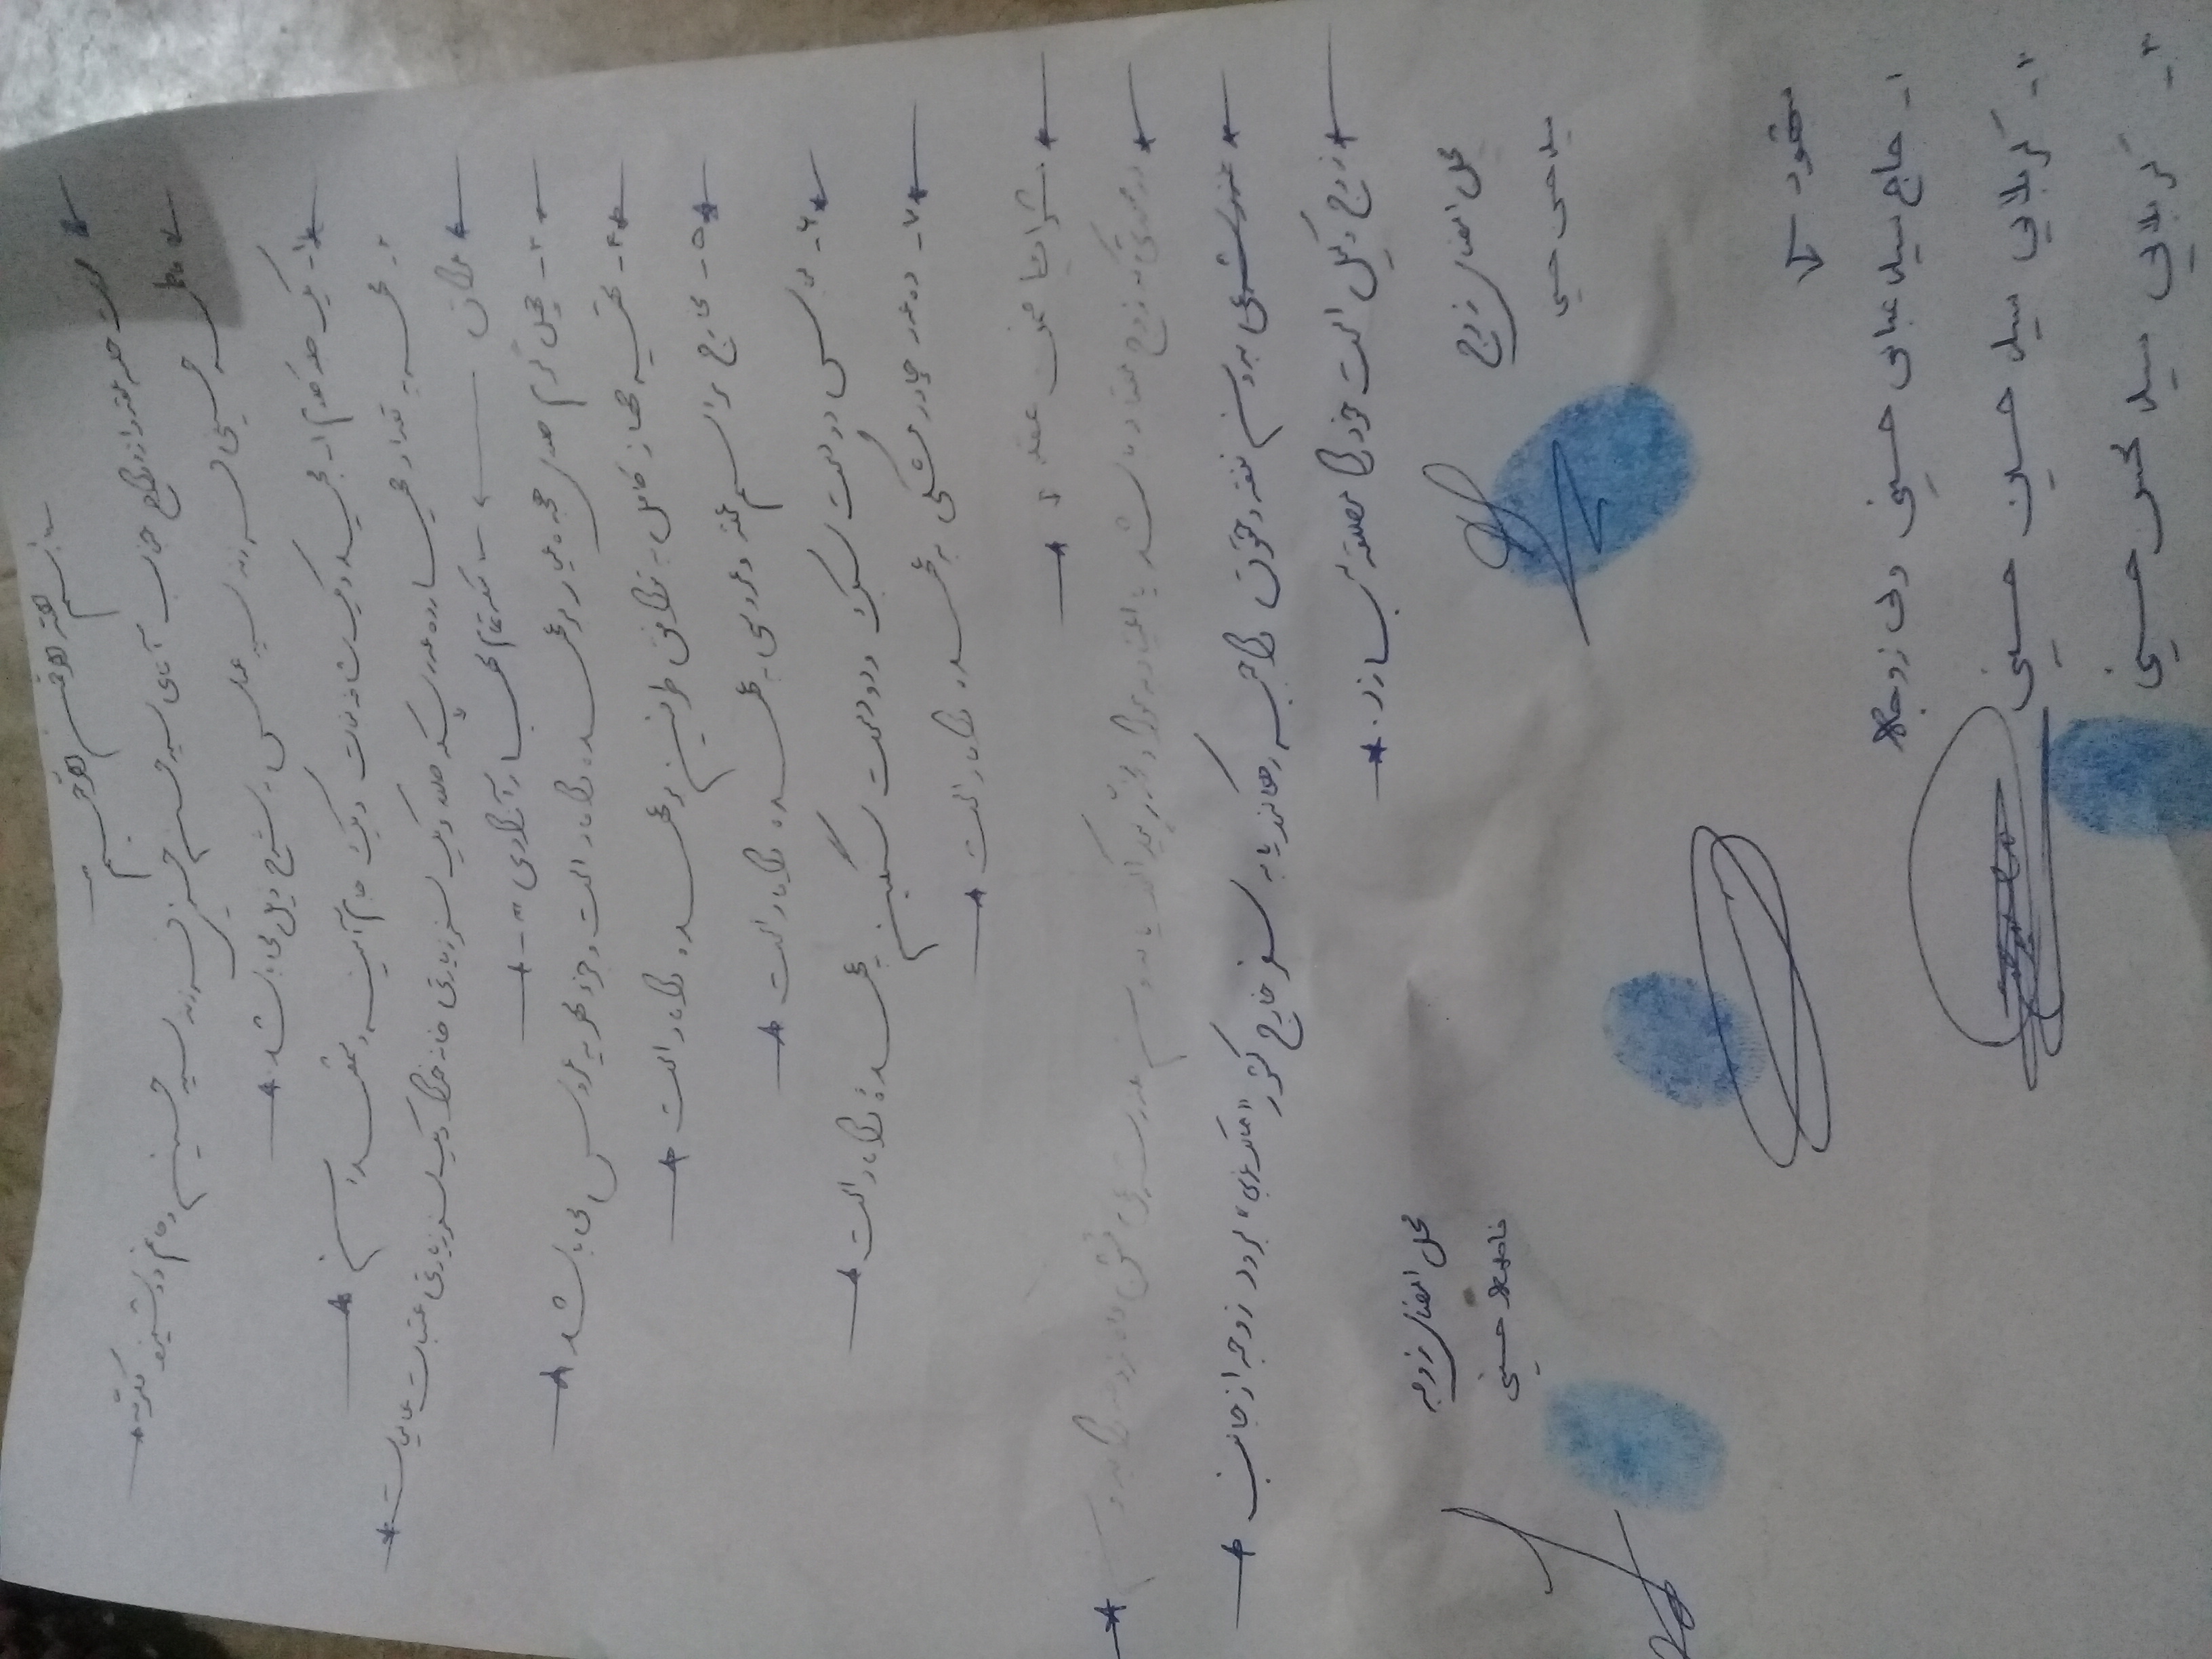 بسم الله الرحمن الرحیم
صورت جلسه عقد و ازدواج جناب آقای سید حسن حسینی فرزند سید حسین و خانم دوشیزه مکرمه
فاطمه حسینی فرزند سید عباس به شرح ذیل می باشد
۱- یک جلد کلام ا... مجید و یک شاخه نبات و یک جام آینه و شمعدان
۲- مهریه به تعداد چهارده عدد سکه طلا و یک سفر زیارتی خانه خدا و یک سفر زیارتی عتبات عالیات
عراق سکه تمام بهار آزادی
۳- چهل گرم طلای هجده عیار بر عهده داماد است و جزء مهریه عروس می باشد
۴- تهیه جهاز کامل به توافق طرفین بر عهده داماد است
۵- مخارج مراسم عقد و عروسی به عهده داماد است
۶- لباس دو دست سبک و دو دست سنگین به عهدهٔ داماد است
۷- ده عدد چادر مشکی به عهده داماد است
شرایط ضمن عقد
در صورتی که زوج معتاد باشد یا اعتیاد به مواد مخدر پیدا کند یا بدون عذر شرعی شش ماه زوجه را بدون
عذر شرعی بدون نفقه و حقوق واجبه رها کند یا به سفر خارج کشور برود زوجه از جانب
زوج وکیل است خود را مطلقه بسازد.
محل امضای زوج
سید حسن حسینی
محل امضای زوجه
فاطمه حسینی
شهود
۱- حاج سید عباس حسینی ولی زوجه
۲- کربلایی سید حسین حسینی
۳- کربلایی سید محسن حسینی